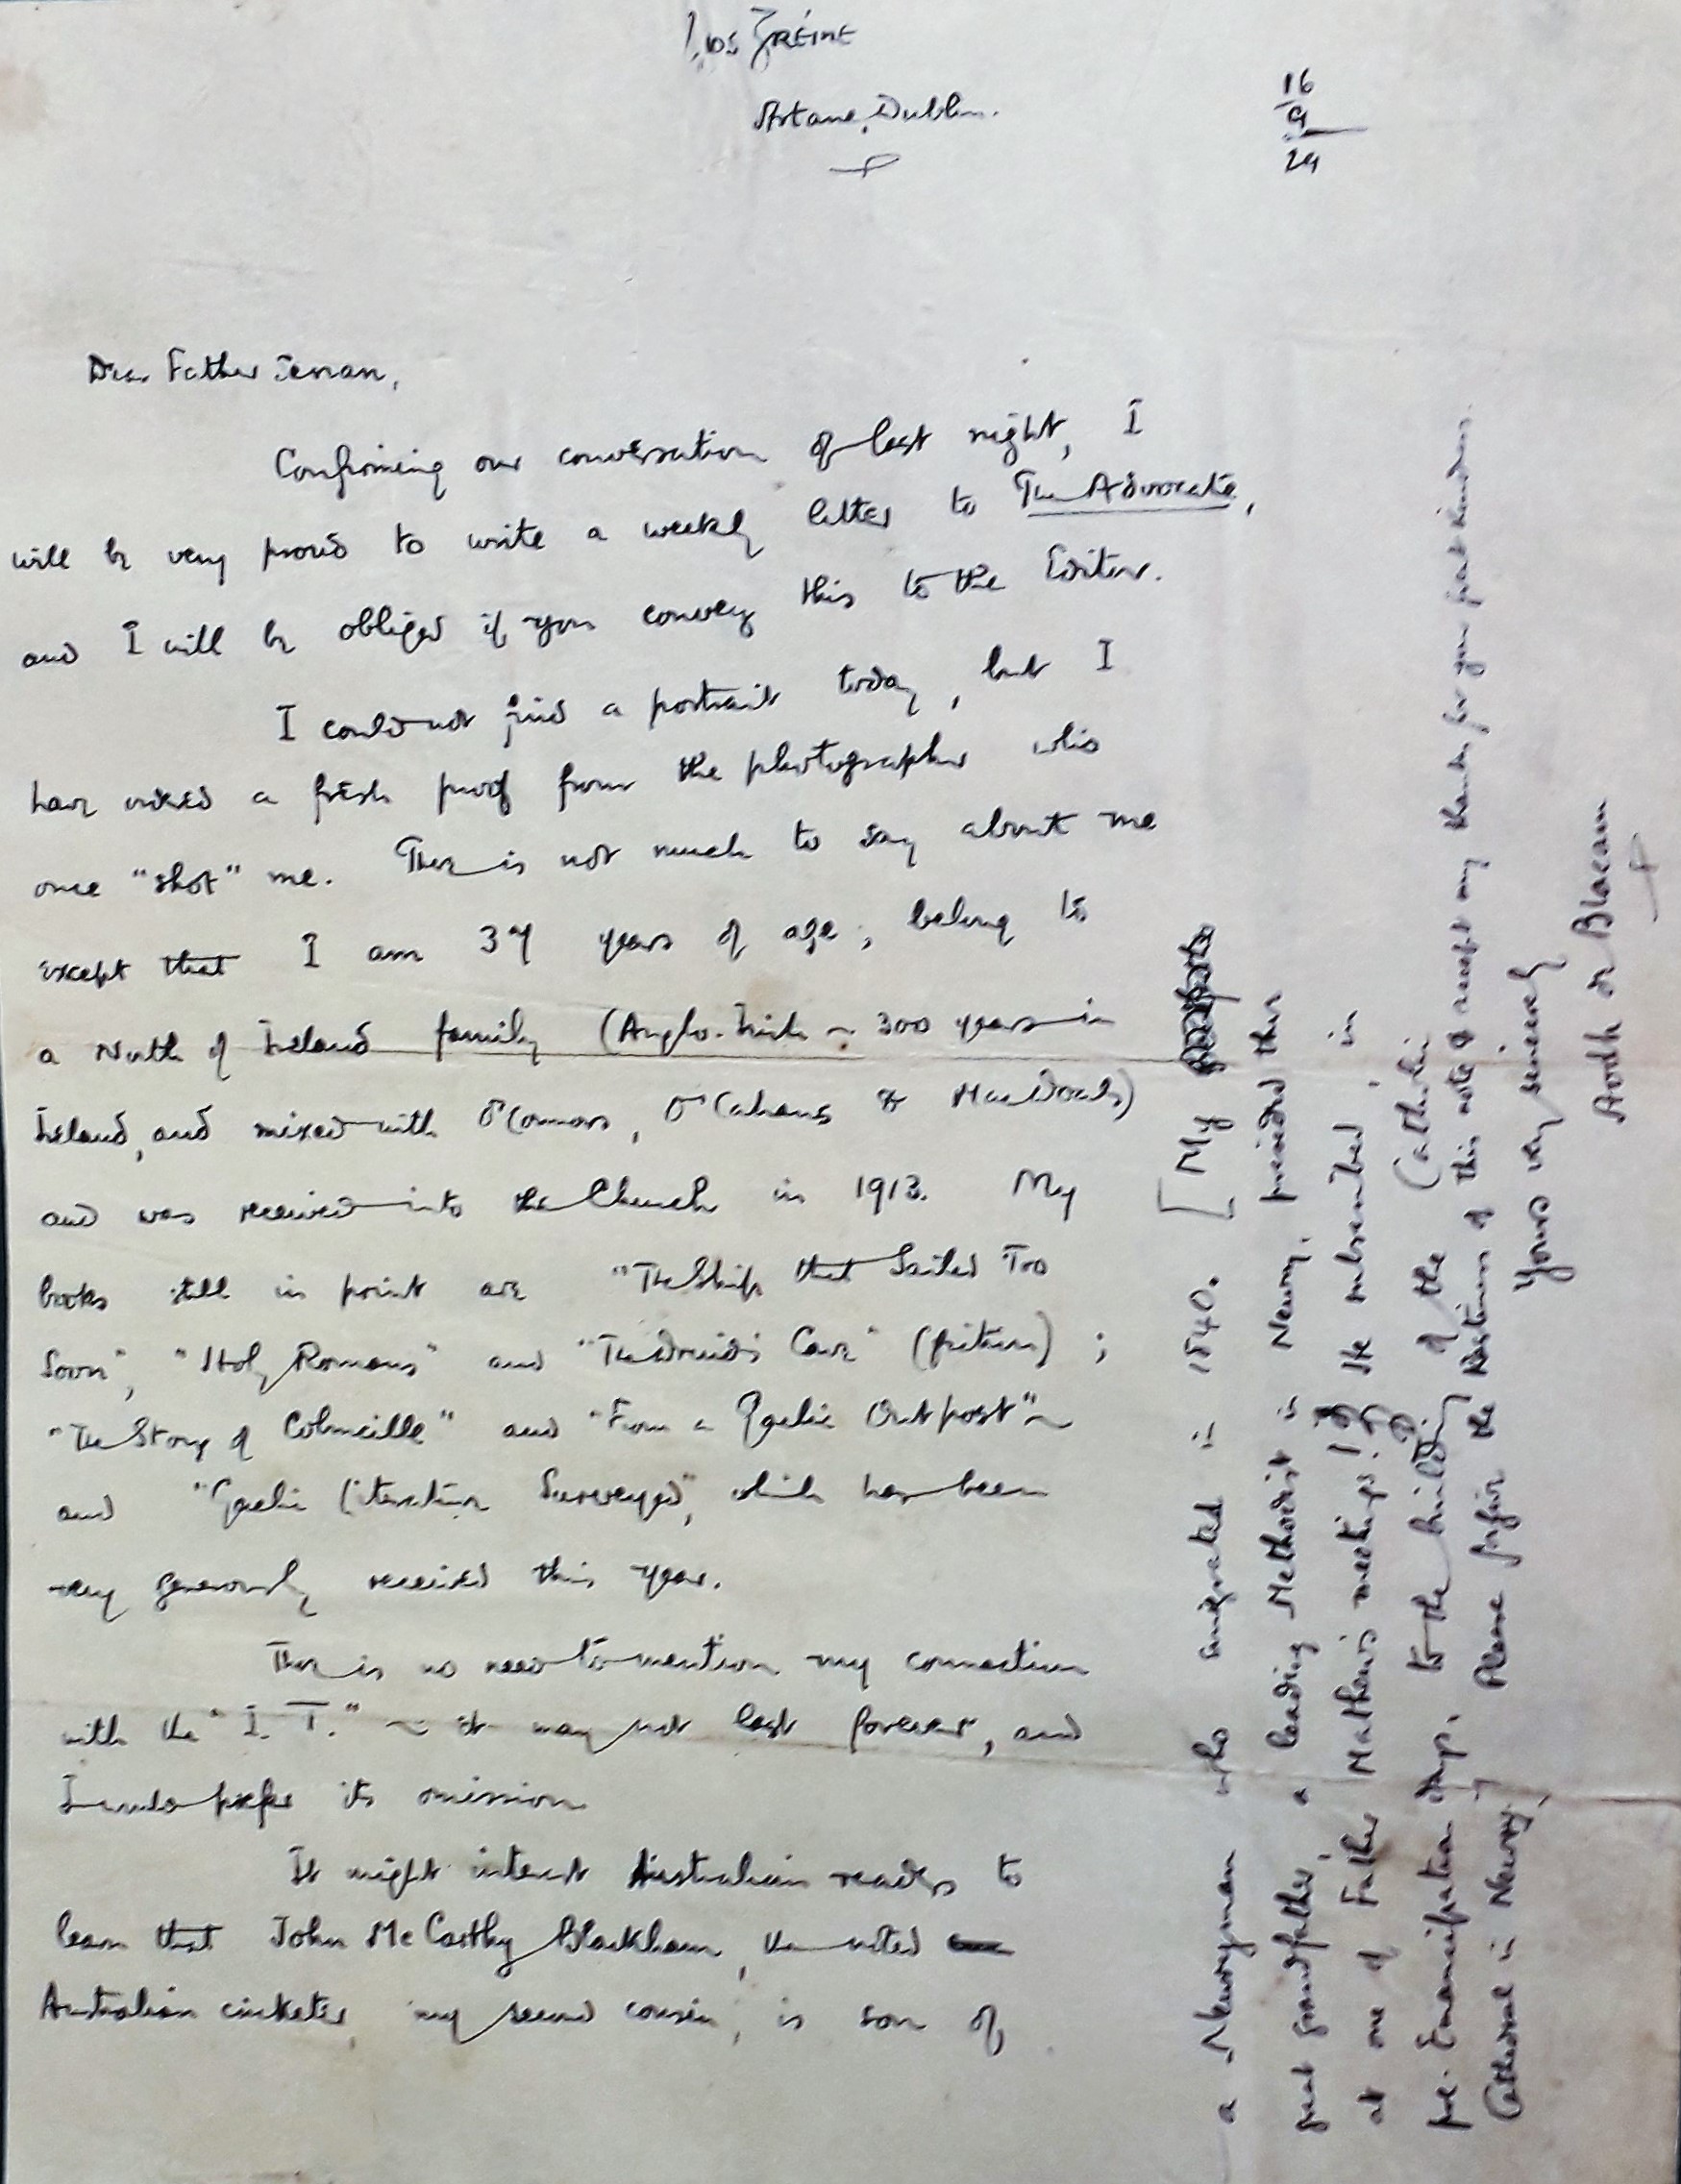 Lios Gréine
Artane, Dublin.
16
9
29
Dear Father
Confirming our conversation of last night, I
will be very proud to write a weekly letter to The Advocate,
and I will be obliged if you convey this to the Editor.
I could not find a portrait today, but I
have asked a fresh proof from the photographer who
once "shot" me. There is not much to say about me
except that I am 37 years of age, belong to
a North of Ireland family (Anglo-Irish ~ 300 years in
Ireland, and mixed with O'Connors, O'Cahans &
and was received into the Church in 1913. My
books still in print are "The Ship that Sailed Too
Soon", "Holy Romans" and "The Druid's Cave" (fiction);
"The Story of Colmcille" and "From a Gaelic Outpost" ~
and "Gaelic Literature Surveyed", which has been
very generously received this year.
There is no need to mention my connection
with the "I. T." ~ it may not last forever, and
I would prefer its omission
It might interest Australian readers to
learn that John McCarthy Blackham, the noted
Australian cricketer, my second cousin, is son of
a Newryman who emigrated in 1840. [My
great grandfather, a leading Methodist in Newry, presided there
at one of Father Mathew's meetings! He subscribed in
pre-Emancipation days, to the building of the Catholic
Cathedral in Newry.] Please forgive the hastiness of this note & accept my thanks for your great kindness.
Yours very sincerely
Aodh de Blacam